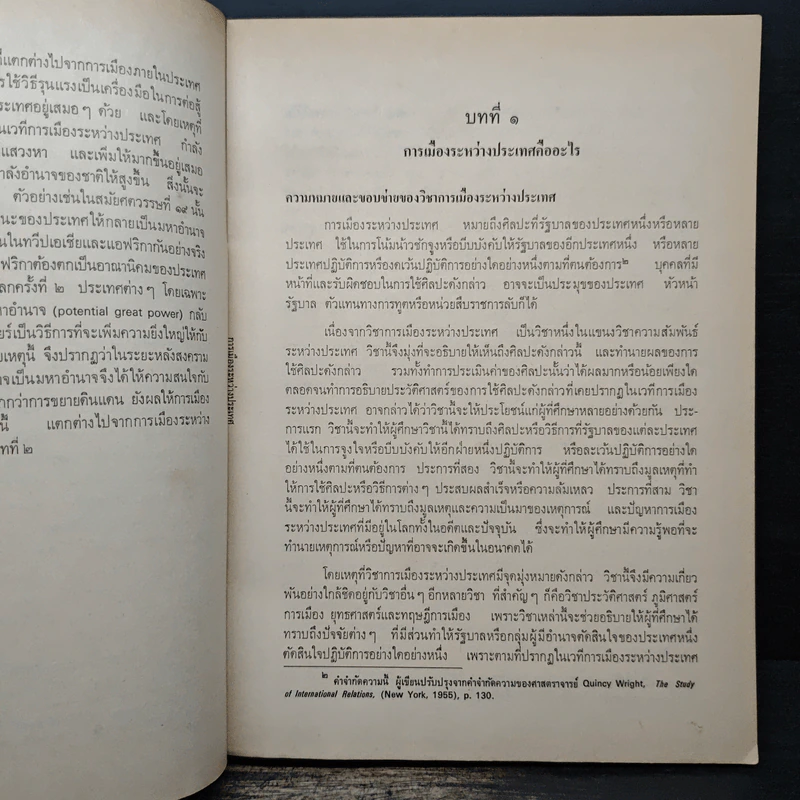 ี่แตกต่างไปจากการเมืองภายในประเทศ
ารใช้วิธีรุนแรงเป็นเครื่องมือในการต่อสู้
ประเทศอยู่เสมอๆ ด้วย และโดยเหตุที่
นเวทีการเมืองระหว่างประเทศ กำลัง
แสวงหา และเพิ่มให้มากขึ้นอยู่เสมอ
ำลังอำนาจของชาติให้สูงขึ้น สิ่งนั้นจะ
ตัวอย่างเช่นในสมัยศตวรรษที่ ๑๙ นั้น
นะของประเทศให้กลายเป็นมหาอำนาจ
นในทวีปเอเซียและแอฟริกากันอย่างจริง
ฟริกาต้องตกเป็นอาณานิคมของประเทศ
ลกครั้งที่ ๒ ประเทศต่างๆ โดยเฉพาะ
หาอำนาจ (potential great power) กลับ
ยร์เป็นวิธีการที่จะเพิ่มความยิ่งใหญ่ให้กับ
ยเหตุนี้ จึงปรากฏว่าในระยะหลังสงคราม
าจเป็นมหาอำนาจจึงได้ให้ความสนใจกับ
ากกว่าการขยายดินแดน ยังผลให้การเมือง
นี้ แตกต่างไปจากการเมืองระหว่าง
บทที่ ๒
การเมืองระหว่างประเทศ
บทที่ ๑
การเมืองระหว่างประเทศคืออะไร
ความหมายและขอบข่ายของวิชาการเมืองระหว่างประเทศ
การเมืองระหว่างประเทศ หมายถึงศิลปะที่รัฐบาลของประเทศหนึ่งหรือหลาย
ประเทศ ใช้ในการโน้มน้าวชักจูงหรือบีบบังคับให้รัฐบาลของอีกประเทศหนึ่ง หรือหลาย
ประเทศปฏิบัติการหรืองดเว้นปฏิบัติการอย่างใดอย่างหนึ่งตามที่ตนต้องการ๒ บุคคลที่มี
หน้าที่และรับผิดชอบในการใช้ศิลปะดังกล่าว อาจจะเป็นประมุขของประเทศ หัวหน้า
รัฐบาล ตัวแทนทางการทูตหรือหน่วยสืบราชการลับก็ได้
เนื่องจากวิชาการเมืองระหว่างประเทศ เป็นวิชาหนึ่งในแขนงวิชาความสัมพันธ์
ระหว่างประเทศ วิชานี้จึงมุ่งที่จะอธิบายให้เห็นถึงศิลปะดังกล่าวนี้ และทำนายผลของการ
ใช้ศิลปะดังกล่าว รวมทั้งทำการประเมินค่าของศิลปะนั้นว่าได้ผลมากหรือน้อยเพียงใด
ตลอดจนทำการอธิบายประวัติศาสตร์ของการใช้ศิลปะดังกล่าวที่เคยปรากฏในเวทีการเมือง
ระหว่างประเทศ อาจกล่าวได้ว่าวิชานี้จะให้ประโยชน์แก่ผู้ที่ศึกษาหลายอย่างด้วยกัน ประ-
การแรก วิชานี้จะทำให้ผู้ที่ศึกษาวิชานี้ได้ทราบถึงศิลปะหรือวิธีการที่รัฐบาลของแต่ละประเทศ
ได้ใช้ในการจูงใจหรือบีบบังคับให้อีกฝ่ายหนึ่งปฏิบัติการ หรือละเว้นปฏิบัติการอย่างใด
อย่างหนึ่งตามที่ตนต้องการ ประการที่สอง วิชานี้จะทำให้ผู้ที่ศึกษาได้ทราบถึงมูลเหตุที่ทำ
ให้การใช้ศิลปะหรือวิธีการต่างๆ ประสบผลสำเร็จหรือความล้มเหลว ประการที่สาม วิชา
นี้จะทำให้ผู้ที่ศึกษาได้ทราบถึงมูลเหตุและความเป็นมาของเหตุการณ์ และปัญหาการเมือง
ระหว่างประเทศที่มีอยู่ในโลกทั้งในอดีตและปัจจุบัน ซึ่งจะทำให้ผู้ที่ศึกษามีความรู้พอที่จะ
ทำนายเหตุการณ์หรือปัญหาที่อาจจะเกิดขึ้นในอนาคตได้
โดยเหตุที่วิชาการเมืองระหว่างประเทศมีจุดมุ่งหมายดังกล่าว วิชานี้จึงมีความเกี่ยว
พันอย่างใกล้ชิดอยู่กับวิชาอื่นๆ อีกหลายวิชา ที่สำคัญๆ ก็คือวิชาประวัติศาสตร์ ภูมิศาสตร์
การเมือง ยุทธศาสตร์และทฤษฎีการเมือง เพราะวิชาเหล่านี้จะช่วยอธิบายให้ผู้ที่ศึกษาได้
ทราบถึงปัจจัยต่างๆ ที่มีส่วนทำให้รัฐบาลหรือกลุ่มผู้มีอำนาจตัดสินใจของประเทศหนึ่ง
ตัดสินใจปฏิบัติการอย่างใดอย่างหนึ่ง เพราะตามที่ปรากฏในเวทีการเมืองระหว่างประเทศ
๒ คำจำกัดความนี้ ผู้เขียนปรับปรุงจากคำจำกัดความของศาสตราจารย์ Quincy Wright, The Study
of International Relations, (New York, 1955), p. 130.